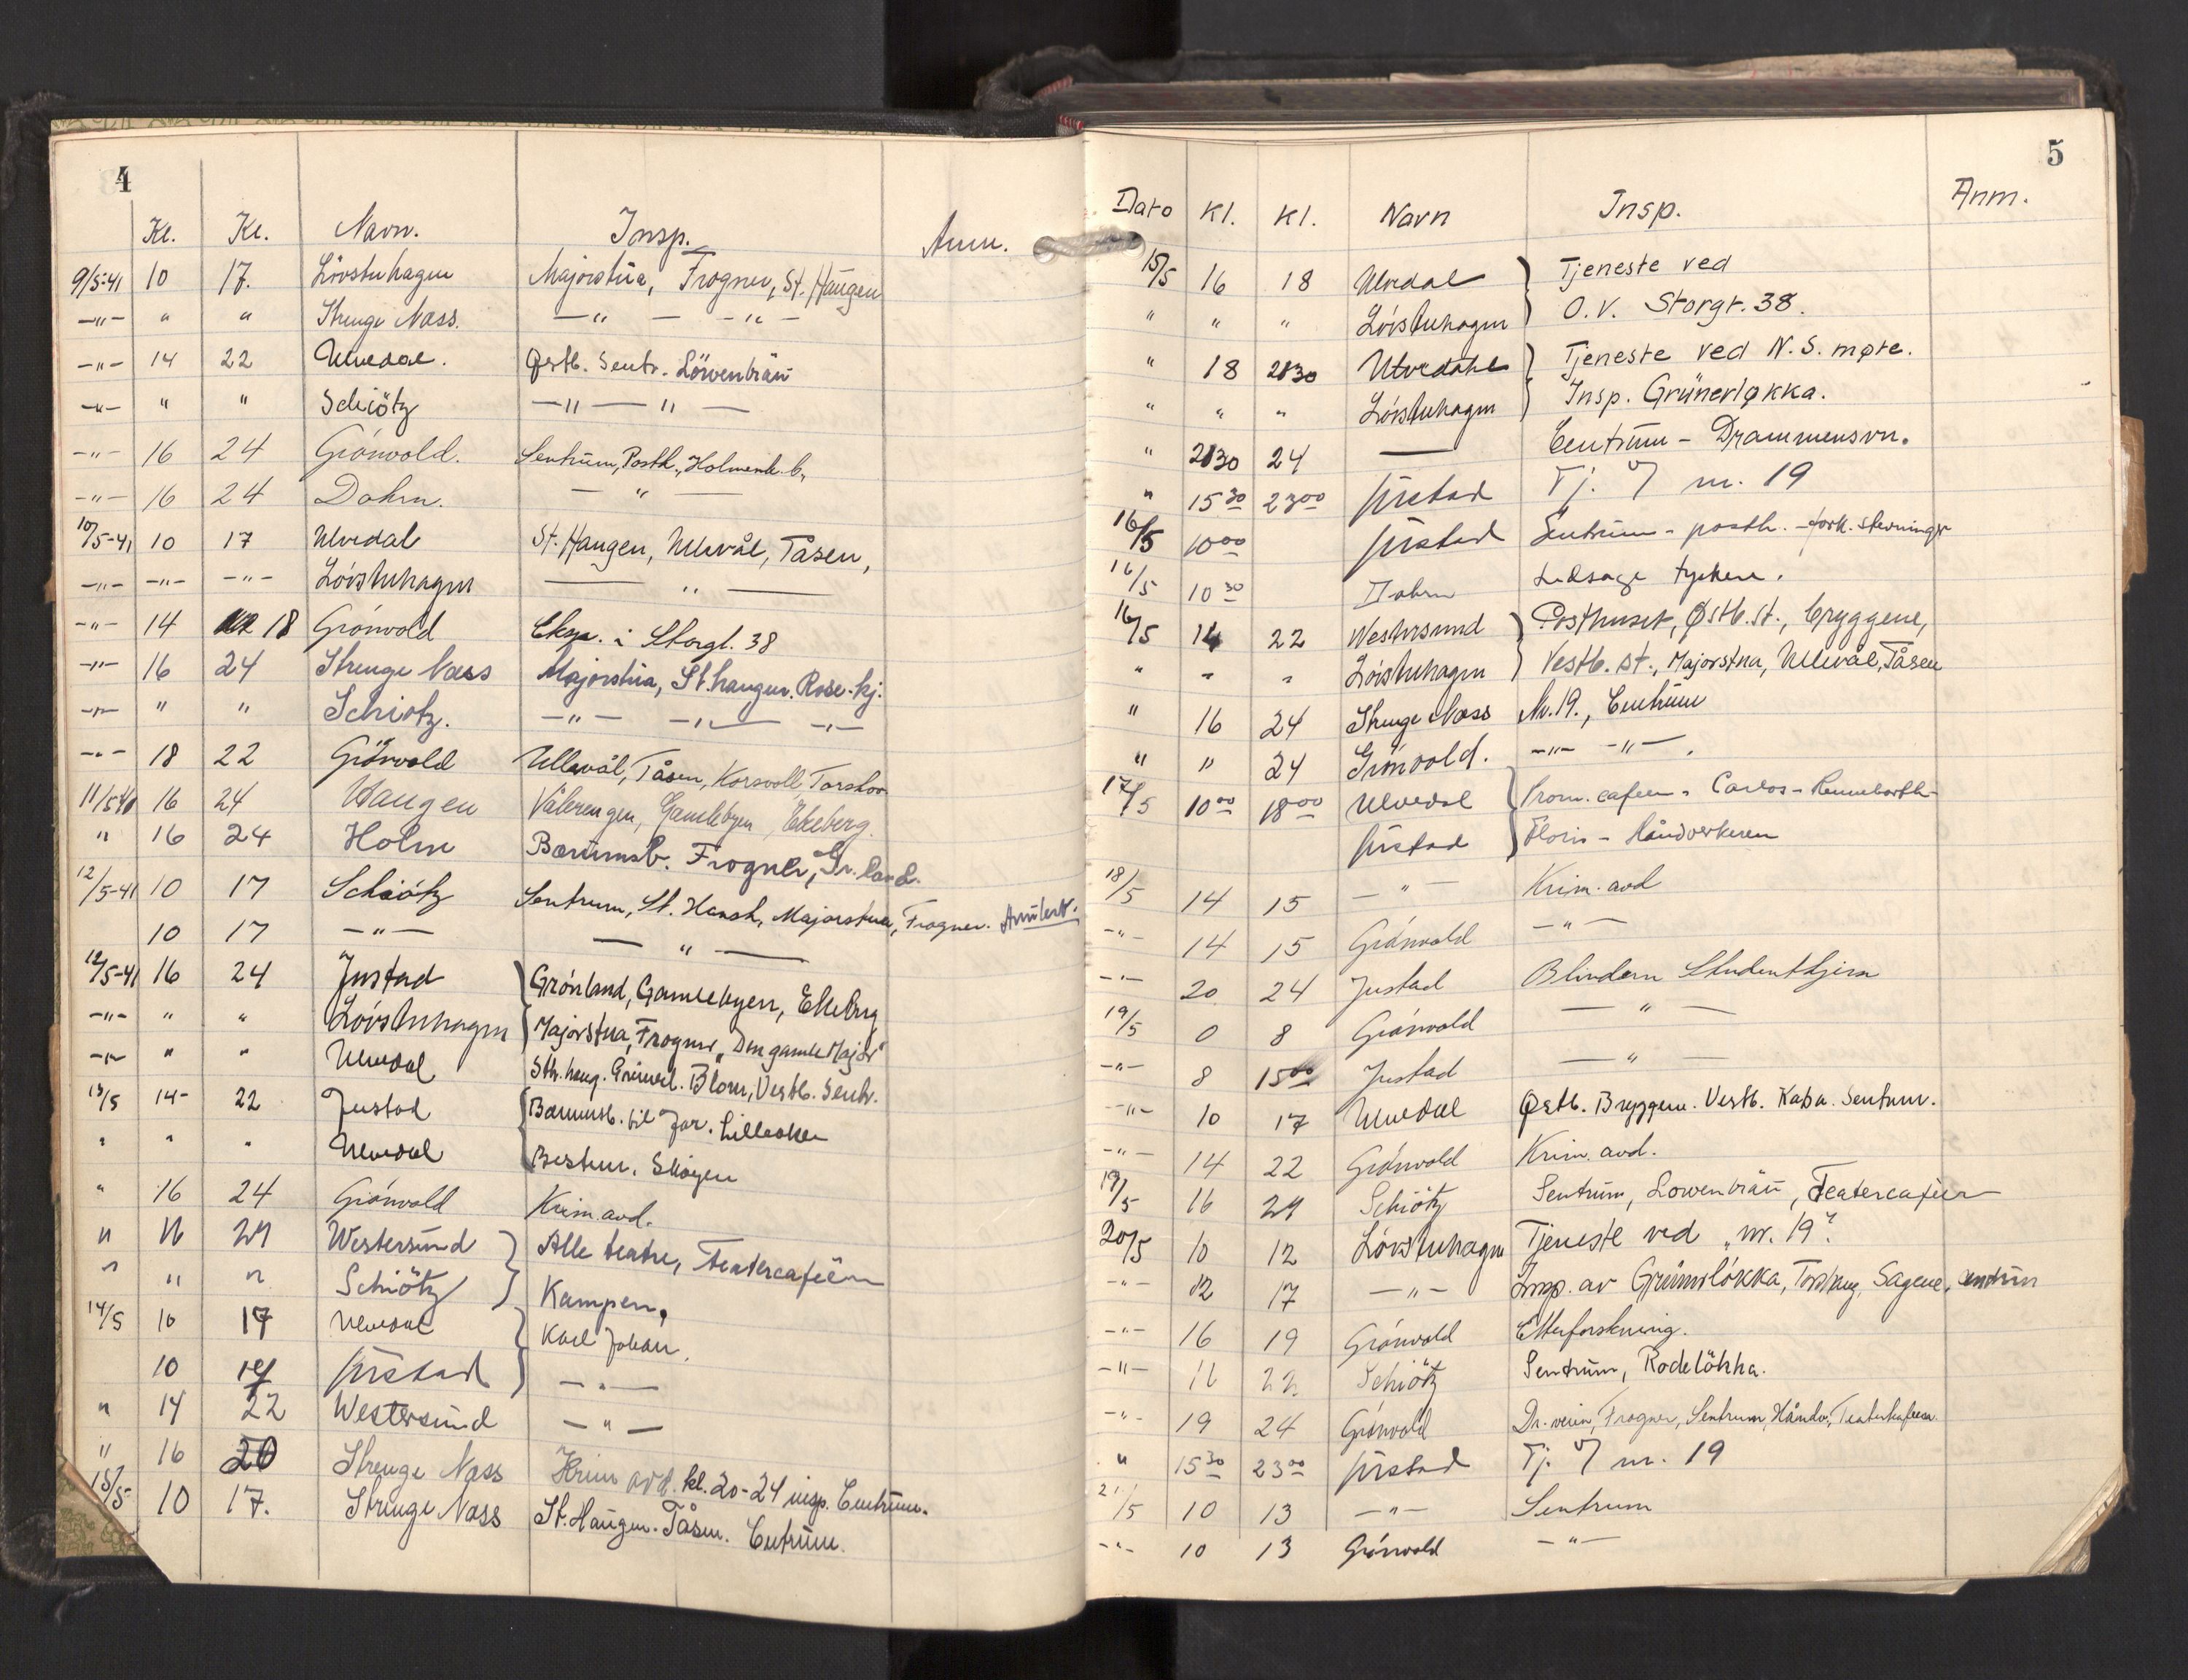 4
Kl. Kl. Navn. Insp. Anm.
9/5-41 10 17. Lövstuhagen Majorstua, Frogner, St. Haugen
-"- " " Strenge Næss. -"- -"-
-"- 14 22 Ulvedal. Østb. Sentr. Löwenbräu
-"- " " Schiötz -"- " -
-"- 16 24 Grönvold. Sentrum, Posth., Holmenk.b.
-"- 16 24 Dahm. - " -
10/5-41 10 17 Ulvedal St. Haugen, Ullevål, Tåsen,
-"- -"- -"- Lövstuhagen - " -
-"- 14 18 Grönvold Eksp. i Storgt. 38
-"- 16 24 Strenge Næss Majorstua, St. haugen. Rose-kj.
-"- " " Schiötz. -"- -"- -"-
-"- 18 22 Grönvold Ullevål, Tåsen, Korsvoll, Torshov
11/5-41 16 24 Haugen Vålerengen, Gamlebyen, Ekeberg.
" 16 24 Holm Bærumsb. Frogner, Gr. land.
12/5-41 10 17 Schiötz Sentrum, St. Hansh, Majorstua, Frogner.
10 17 -"- - " -
12/5-41 16 24 Justad Grönland, Gamlebyen, Ekebrg
-"- " " Lövstuhagen Majorstua, Frogner, "Den gamle Major"
-"- " " Ulvedal Sth. haug. Blom, Vestb. Sentr.
13/5 14- 22 Justad Bærumsb. til Jar. Lilleaker
" " " Ulvedal Bestun. Skøyen
" 16 24 Grönvold Krim.avd.
" 16 24 Westersund Alle teatre, Teatercaféen
" " " Schiötz Kampen.
14/5 10 17 Ulvedal Karl Johan.
10 17 Justad - " -
" 14 22 Westersund - " -
" 16 20 Strenge Næss Krim avd. kl. 20-24 insp. Centrum.
15/5- 10 17. Strenge Næss St. Haugen. Tåsen. Centrum.
5
Dato Kl. Kl. Navn Insp. Anm.
15/5 16 18 Ulvedal Tjeneste ved
" " " Lövstuhagen O.V. Storgt. 38.
" 18 2130 Ulvedahl Tjeneste ved N.S. møte.
" " " Lövstuhagen Insp. Grünerløkka.
" 2130 24 — Centrum - Drammensvn.
" 15 30 23 00 Justad Tj. v/ nr. 19
16/5 10 00 Justad Sentrum - posth. - fork. stevninger
16/5 10 30 Dahm Ledsage tyskere.
16/5 14 22 Westersund Posthuset, Østb.st., bryggene,
" - " Lövstuhagen Vestb. st., Majorstua, Ullevål, Tåsen
" 16 24 Strenge Næss Nr. 19., Centrum
" " 24 Grönvold. -"- -"- .
17/5 10 00 18 00 Ulvedal Prom. cafeen - Carlos -
Justad Floris - Håndverkeren
18/5 14 15 - " - Krim. avd
-"- 14 15 Grönvold - " -
-"- 20 24 Justad Blindern Studenthjem
19/5 0 8 Grönvold - " -
-"- 8 15 00 Justad - " -
-"- 10 17 Ulvedal Østb. Bryggene. Vestb. Kaba. Sentrum.
-"- 14 22 Grönvold Krim. avd.
19/5 16 24 Schiötz Sentrum, Lowenbräu, Teatercafeen
20/5 10 12 Lövstuhagen Tjeneste ved "nr. 19".
-"- 12 17 - " - Insp. av Grünerlökka, Sagene, sentrum
-"- 16 19 Grönvold Etterforskning.
-"- 16 22 Schiötz Sentrum, Rodelökka.
-"- 19 24 Grönvold Dr. veien, Frogner, Sentrum, Håndv., Teaterkafeen.
" 15 30 23 00 Justad Tj. v/ nr. 19
21/5 10 13 - " - Sentrum
-"- 10 13 Grönvold - " -